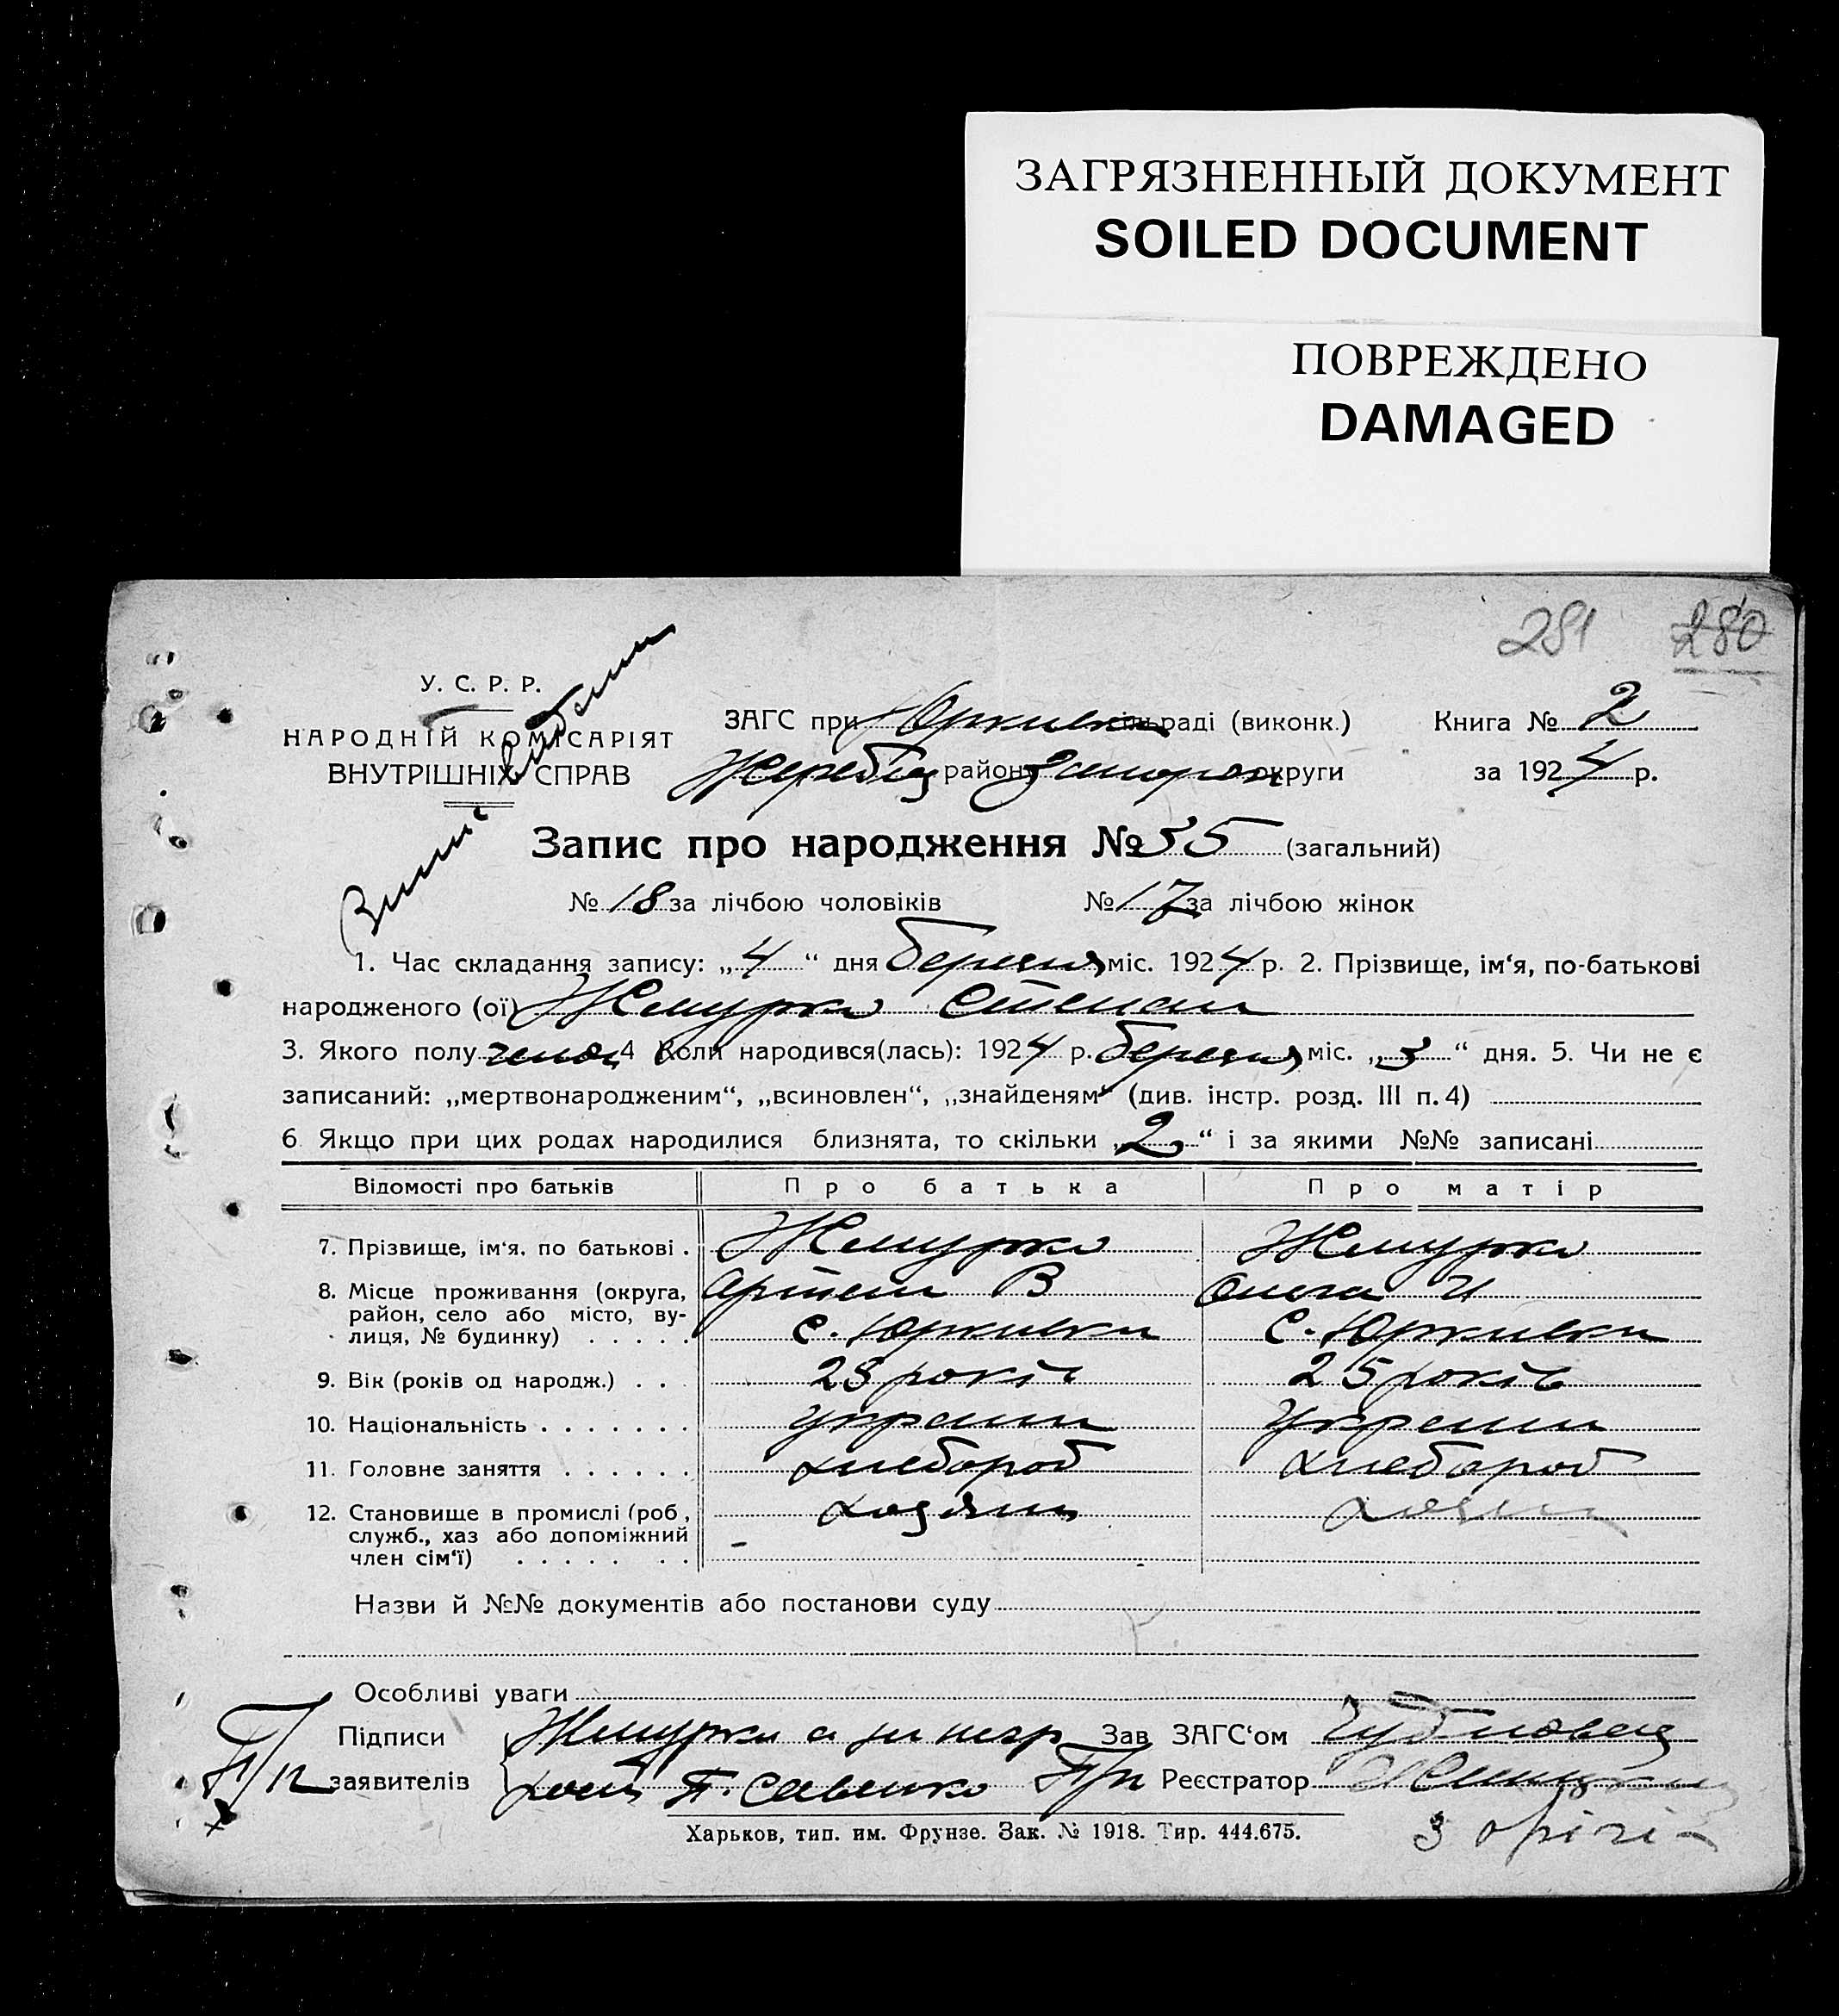 ЗАГРЯЗНЕННЫЙ ДОКУМЕНТ
SOILED DOCUMENT
ПОВРЕЖДЕНО
DAMAGED
281 280
У. С. Р. Р.
НАРОДНІЙ КОМІСАРІЯТ
ВНУТРІШНІХ СПРАВ
ЗАГС при Юркивка сільраді (виконк.) Книга № 2
Жеребец район Запорож округи за 1924 р.
Запис про народження № 35 (загальний)
№ 18 за лічбою чоловіків № 17 за лічбою жінок
1. Час складання запису: „4“ дня березня міс. 1924 р. 2. Прізвище, ім‘я, по-батькові
народженого (ої) Жемурко Степан
3. Якого полу 4 Коли народився(лась): 1924 р. березня міс. „3“ дня. 5. Чи не є
записаний: „мертвонародженим“, „всиновлен“, „знайденям“ (див. інстр. розд. III п. 4)
6 Якщо при цих родах народилися близнята, то скільки „2“ і за якими №№ записані
Відомості про батьків Про батька Про матір
7. Прізвище, ім‘я, по батькові . Жемурко Жемурко
8. Місце проживання (округа, Артем В
район, село або місто, ву-
лиця, № будинку) . . . . . с. Юркивка с. Юркивка
9. Вік (років од народж.) . . 28 років 25 років
10. Національність . . . . . . . украин украин
11. Головне заняття . . . . . . хлебороб хлебороб
12. Становище в промислі (роб, хозяин хозяин
служб., хаз або допоміжний
член сім‘ї) . . . . . . .
Назви й №№ документів або постанови суду
Особливі уваги
Підписи Жемурко а за негр Зав ЗАГС‘ом
заявителів П. Савенко Реєстратор
Харьков, тип. им. Фрунзе. Зак. № 1918. Тир. 444.675.